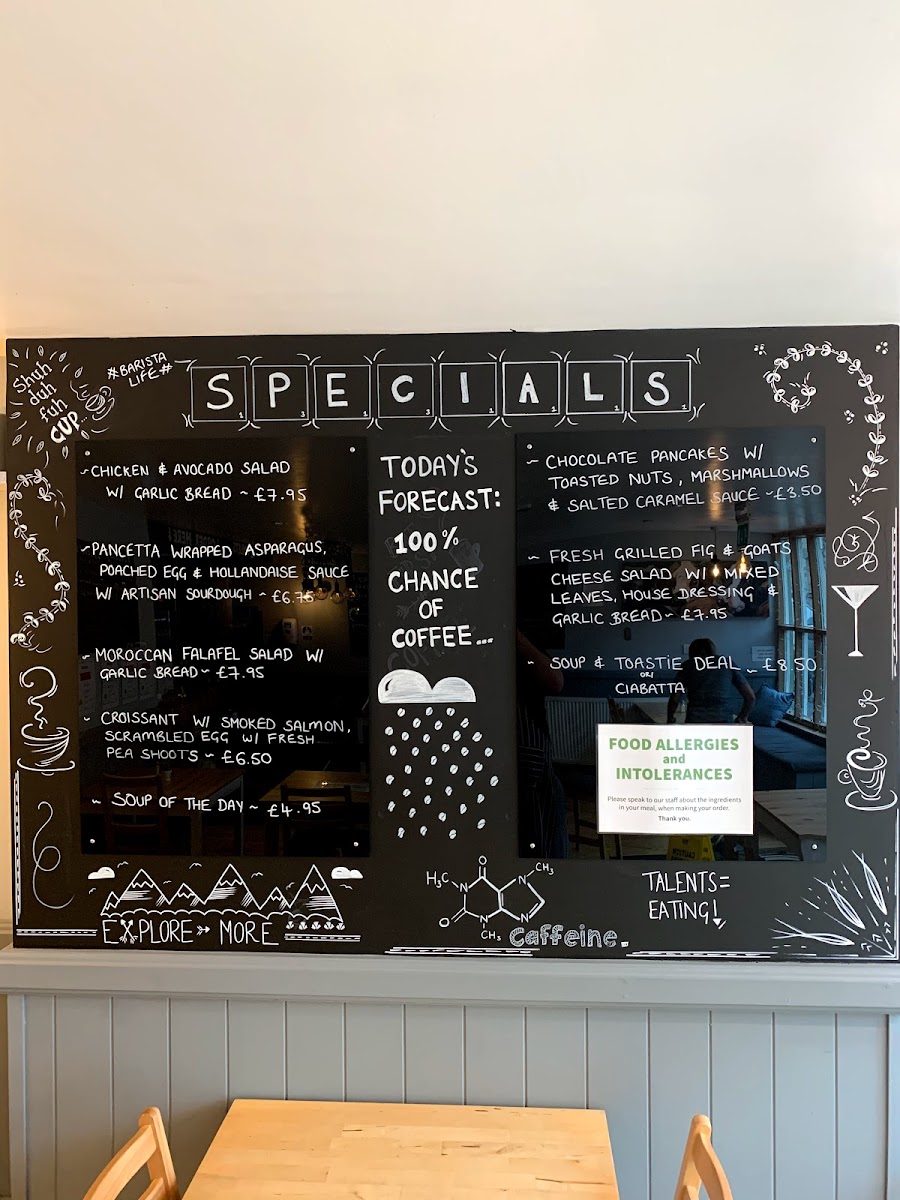 Shuh
duh
fuh
CUP
#BARISTA
LIFE#
SPECIALS
~CHICKEN & AVOCADO SALAD
W/ GARLIC BREAD ~ £7.95
~PANCETTA WRAPPED ASPARAGUS,
POACHED EGG & HOLLANDAISE SAUCE
W/ ARTISAN SOURDOUGH ~ £6.75
~ MOROCCAN FALAFEL SALAD W/
GARLIC BREAD~ £7.95
~ CROISSANT W/ SMOKED SALMON,
SCRAMBLED EGG W/ FRESH
PEA SHOOTS ~ £6.50
~ SOUP OF THE DAY ~ £4.95
TODAY'S
FORECAST:
100%
CHANCE
OF
COFFEE...
~ CHOCOLATE PANCAKES W/
TOASTED NUTS, MARSHMALLOWS
& SALTED CARAMEL SAUCE ~£3.50
~ FRESH GRILLED FIG & GOATS
CHEESE SALAD W/ MIXED
LEAVES, HOUSE DRESSING &
GARLIC BREAD~ £7.95
~ SOUP & TOASTIE DEAL ~ £8.50
OR/
CIABATTA
FOOD ALLERGIES
and
INTOLERANCES
Please speak to our staff about the ingredients
in your meal, when making your order.
Thank you.
EXPLORE MORE
H₃C
N
O
N
CH₃
O
N
CH₃
N
Caffeine...
TALENTS=
EATING!